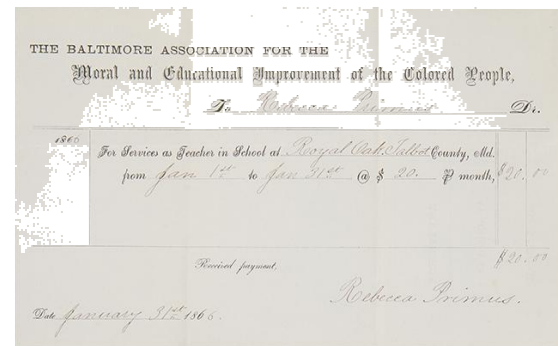 THE BALTIMORE ASSOCIATION FOR THE
Moral and Educational Improvement of the Colored People,
To Rebecca Primus Dr.
1866
For Services as Teacher in School at Royal Oak, Talbot County, Md.
from Jan 1st to Jan 31st @ $ 20. ₱ month, $20.00
$20.00
Received payment,
Rebecca Primus.
Date January 31st 1866.